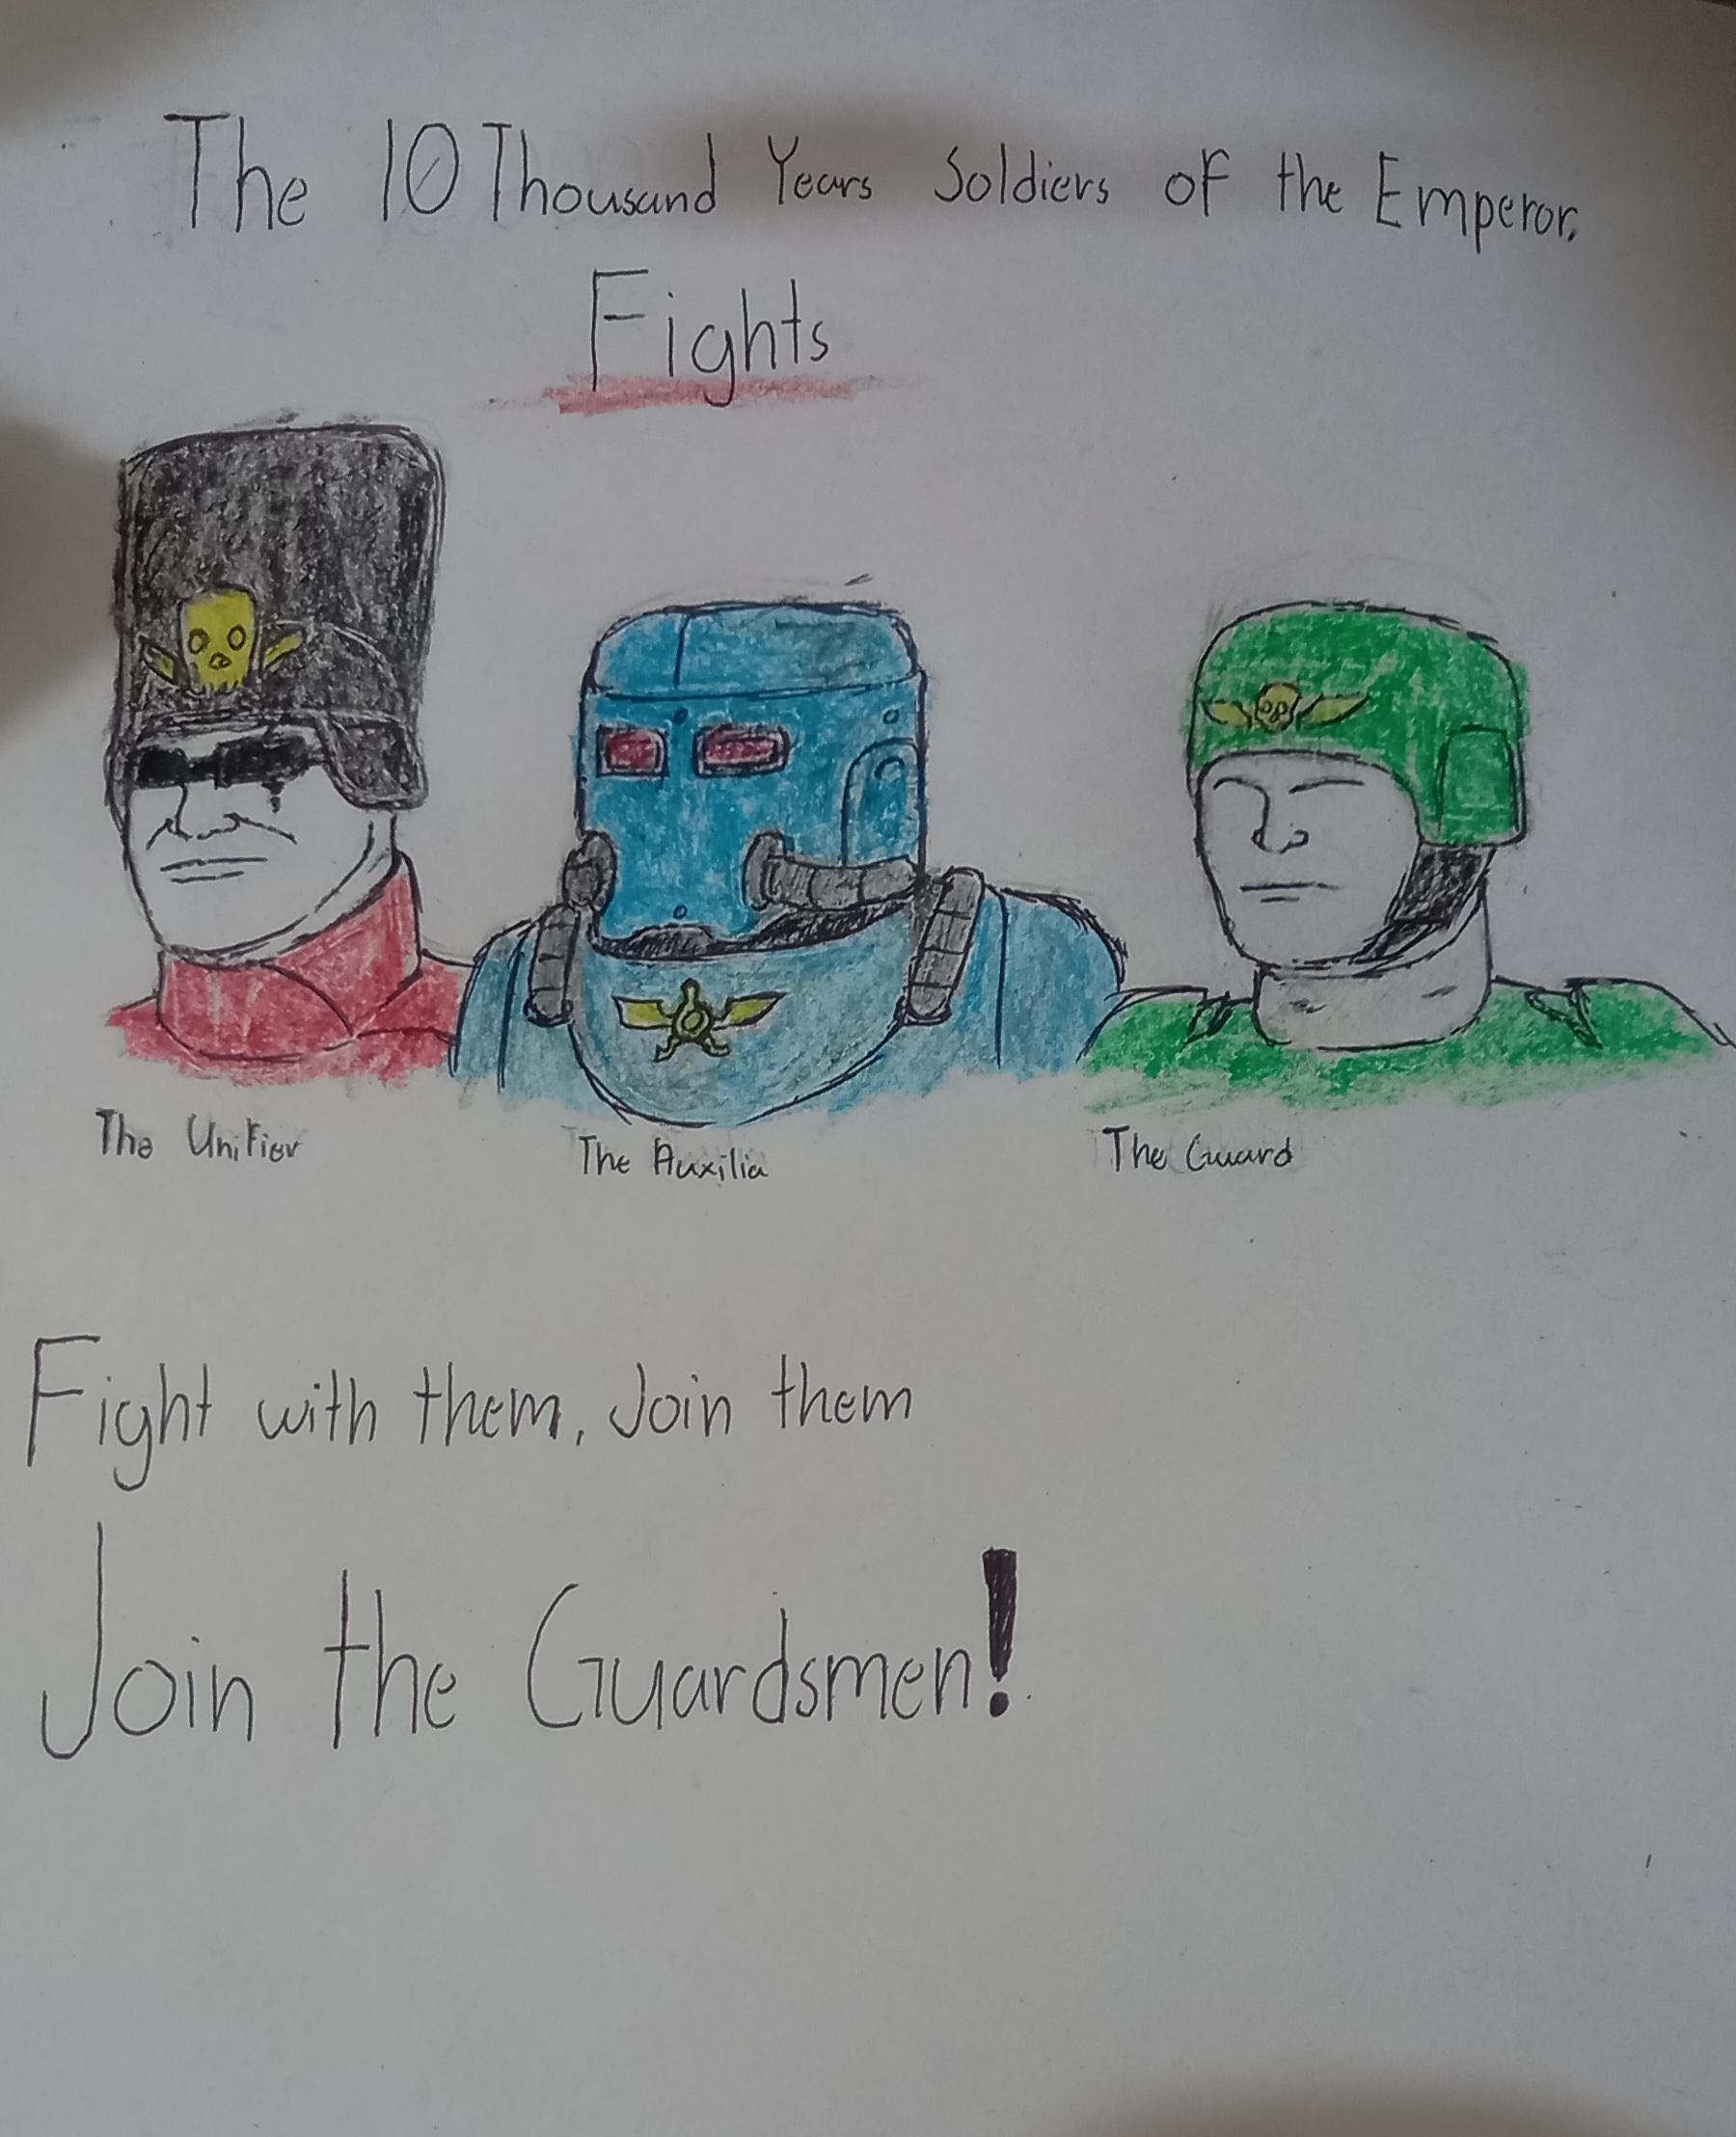 The 10 Thousand Years Soldiers of the Emperor.
Fights
The Unifier
The Auxilia
The Guard
Fight with them, Join them
Join the Guardsmen!